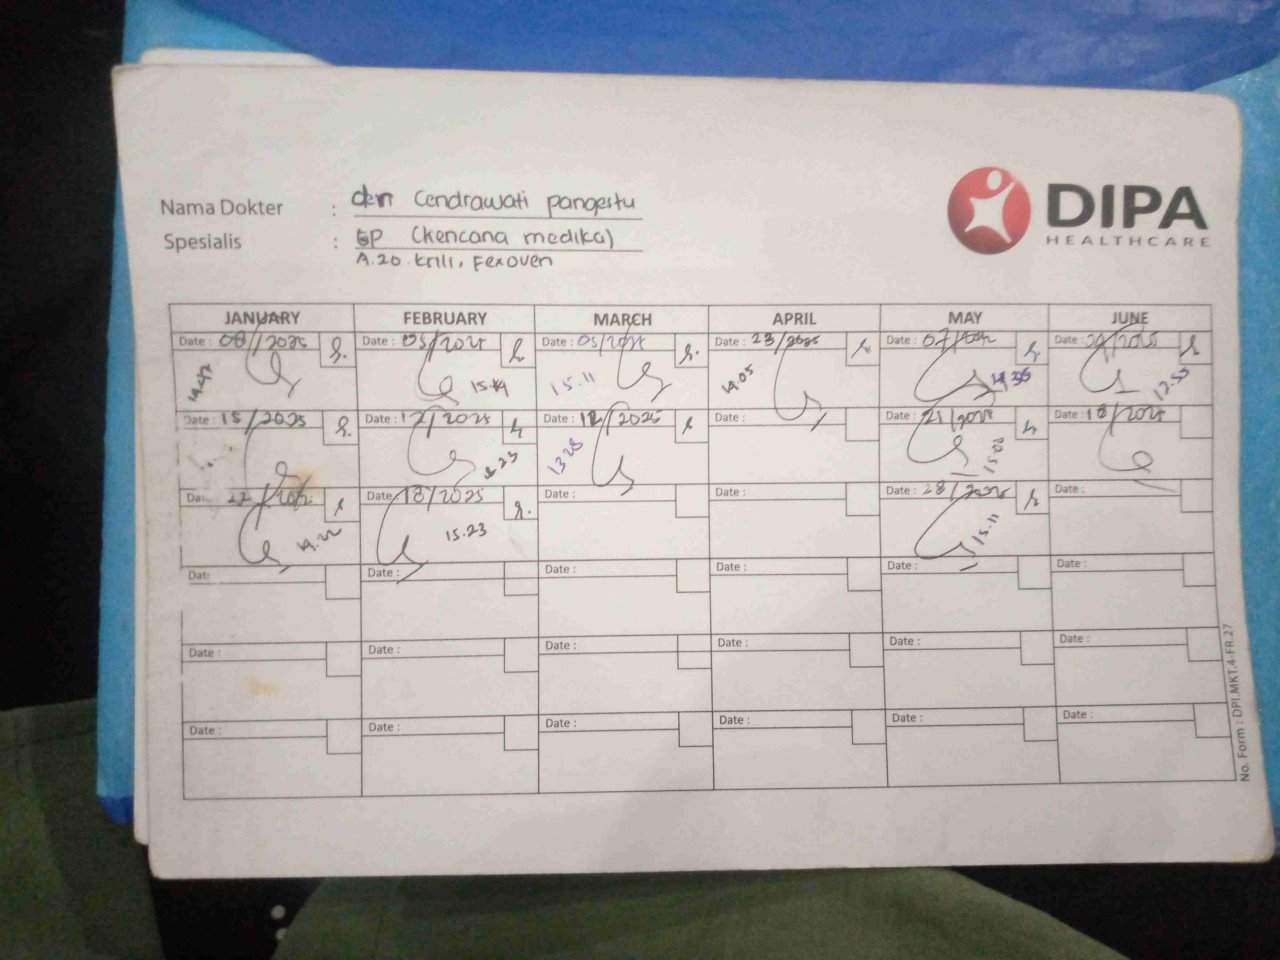 Nama Dokter : Cendrawati pangestu
Spesialis : GP (Kencana medika)
A.20. krill, Fexoven
DIPA
HEALTHCARE
JANUARY FEBRUARY MARCH APRIL MAY JUNE
Date : 08/2025 Date : 05/2025 Date : 05/2025 Date : 23/2025 Date : 07/2025 Date : /2025
15.19 15.11 14.05 12.55
Date : 15/2025 Date : 12/2025 Date : 12/2025 Date : Date : 21/2025 Date : 18/2025
13.28
22/2025 Date : 18/2025 Date : Date : Date : 28/2025 Date :
14.22 15.23 15.11
Date : Date : Date : Date : Date :
Date : Date : Date : Date : Date : Date :
Date : Date : Date : Date : Date : Date :
No. Form : DPI.MKT.4-FR.27